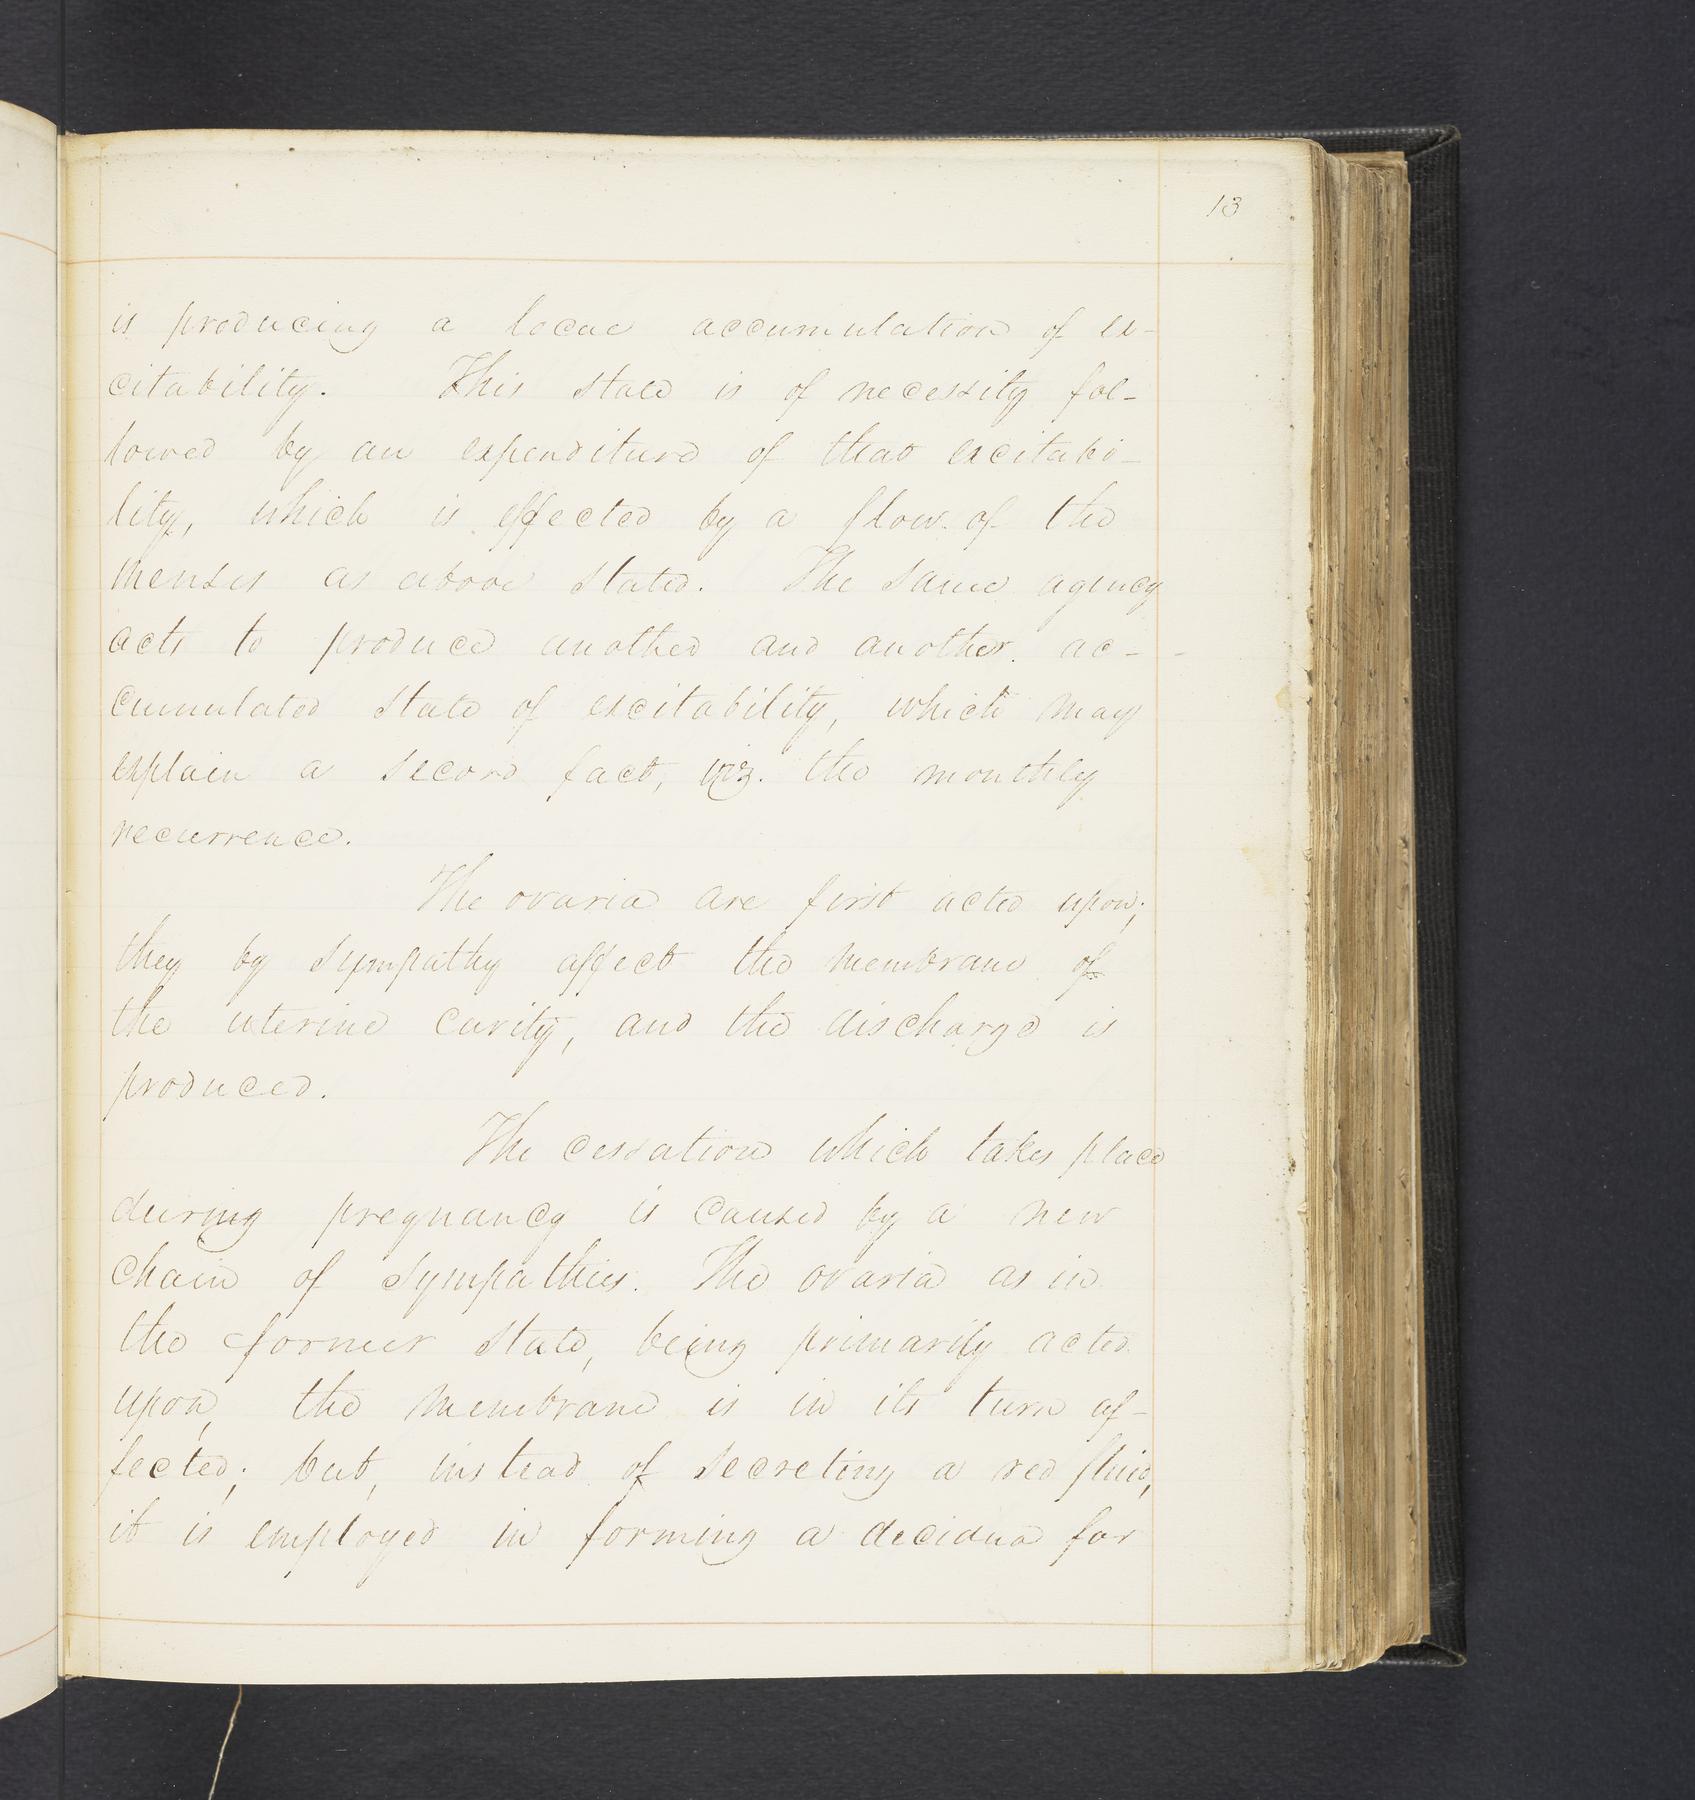 13
is producing a local accumulation of ex-
citability. This state is of necessity fol-
lowed by an expenditure of that excitabi-
lity, which is effected by a flow of the
menses as above stated. The same agency
acts to produce another and another ac-
cumulated state of excitability, which may
explain a second fact, viz. the monthly
recurrence.
The ovaria are first acted upon;
they by sympathy affect the membrane of
the uterine cavity, and the discharge is
produced.
The cessation which takes place
during pregnancy is caused by a new
chain of sympathies. The ovaria as in
the former state, being primarily acted
upon, the membrane is in its turn af-
fected; but, instead of secreting a red fluid,
it is employed in forming a decidua for